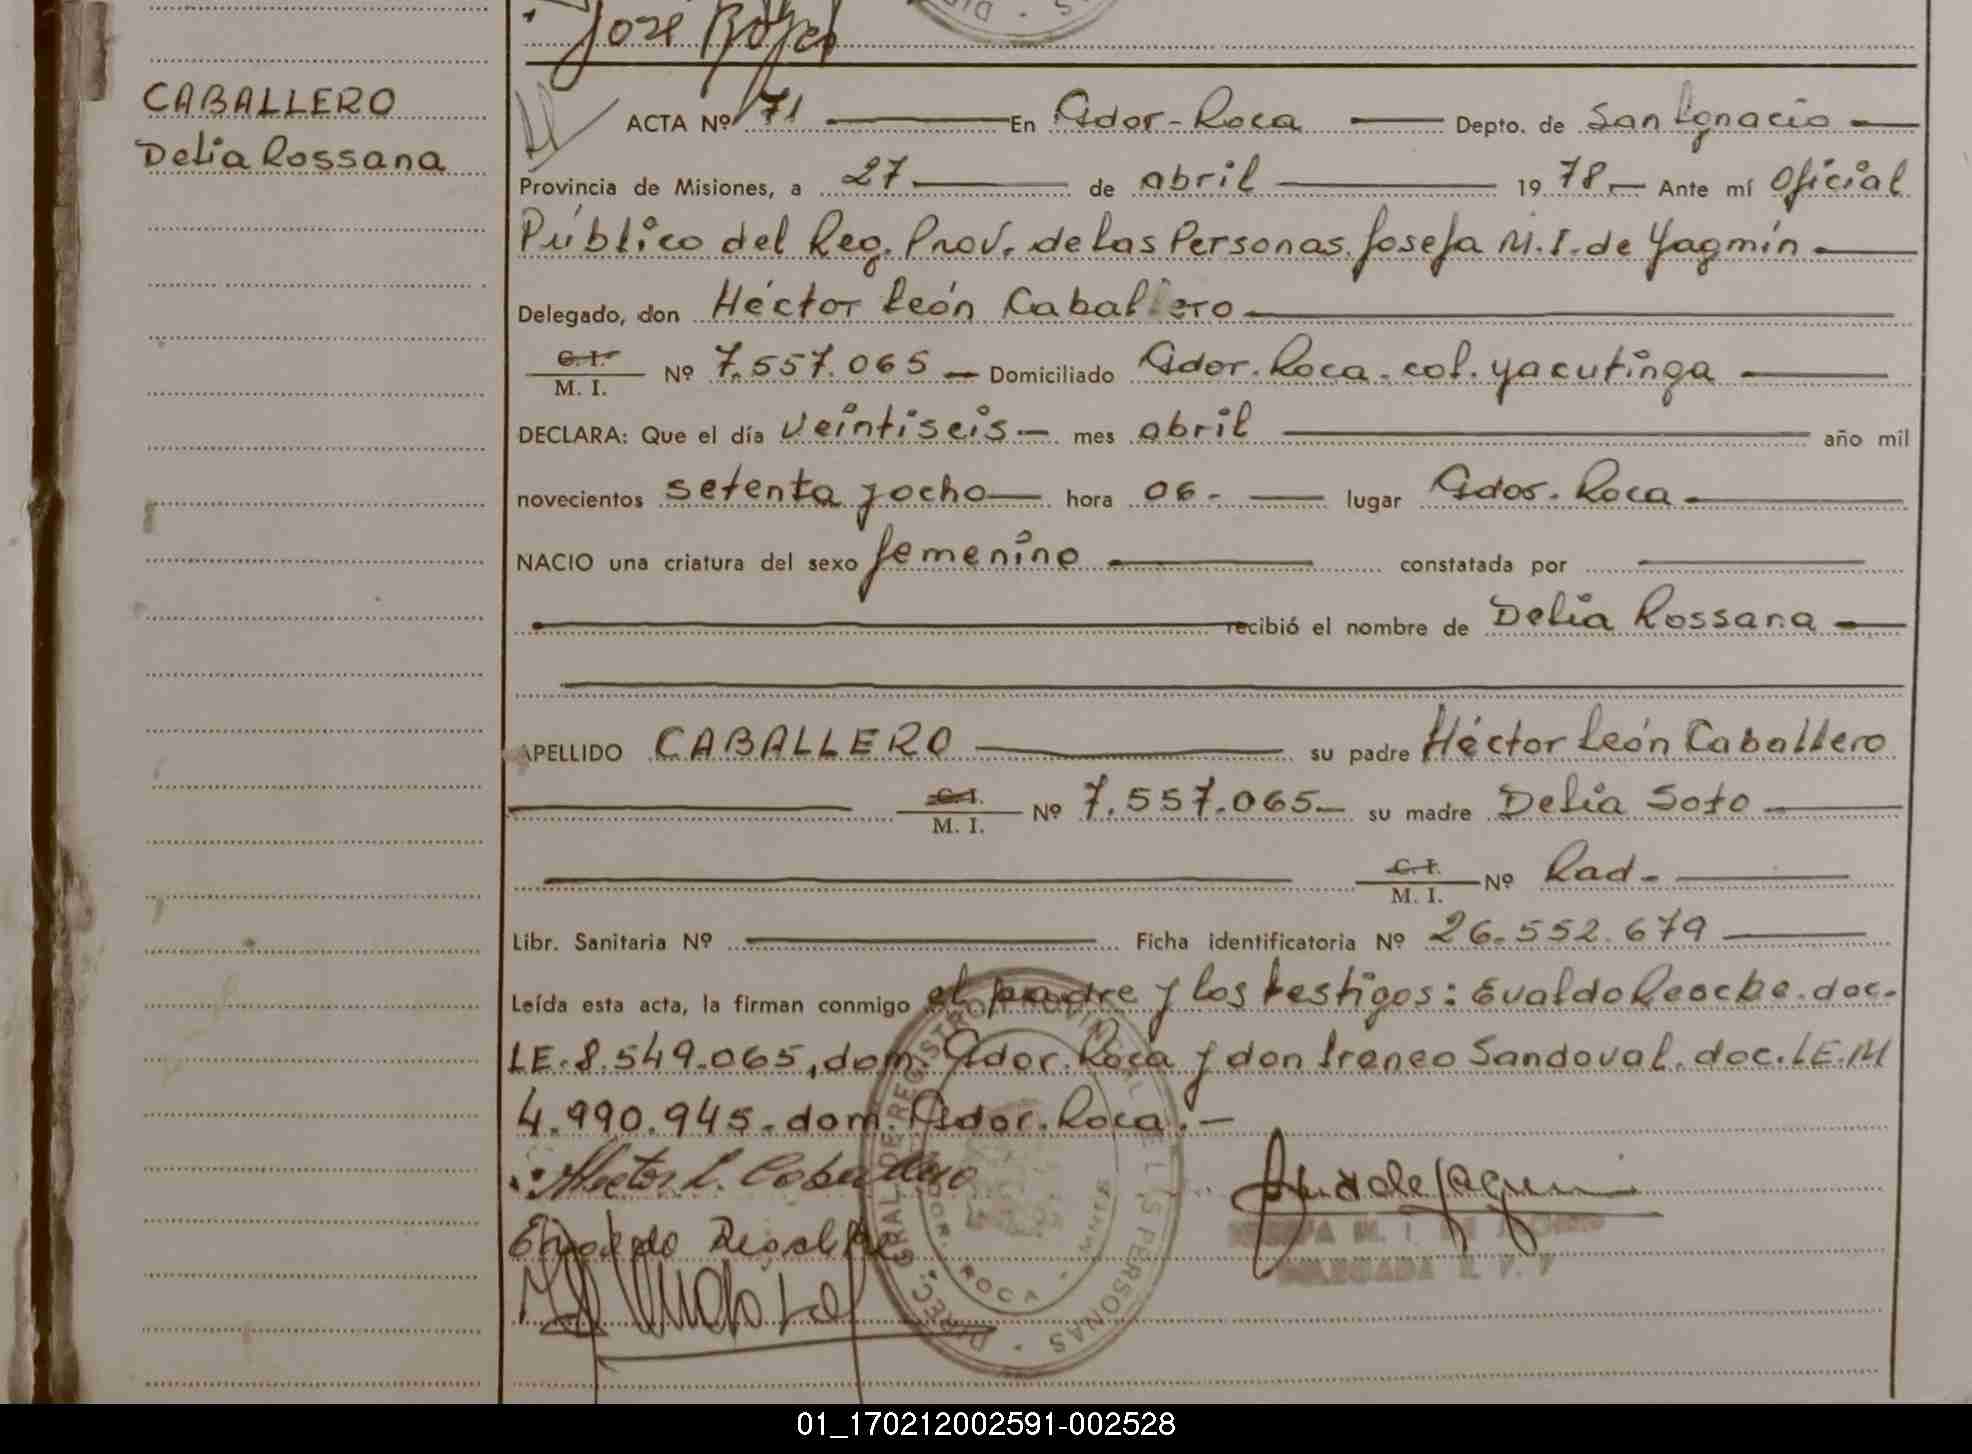 José Rojas
CABALLERO
Delia Rossana
ACTA Nº 171 En Gdor-Roca Depto. de San Ignacio
Provincia de Misiones, a 27 de abril 1978 Ante mí Oficial
Público del Reg. Prov. de las Personas Josefa M. I. de Yagmín
Delegado, don Héctor León Caballero
C. I.
M. I. Nº 7.557.065 Domiciliado Gdor. Roca. col. yacutinga
DECLARA: Que el día veintiseis mes abril año mil
novecientos setenta y ocho hora 06- lugar Gdor. Roca
NACIO una criatura del sexo femenino constatada por
recibió el nombre de Delia Rossana
APELLIDO CABALLERO su padre Héctor León Caballero
C. I.
M. I. Nº 7.557.065 su madre Delia Soto
C. I.
M. I. Nº Rad-
Libr. Sanitaria Nº Ficha identificatoria Nº 26.552.679
Leída esta acta, la firman conmigo el padre y los testigos: Evaldo Reocbe. doc.
LE. 8.549.065, dom. Gdor. Roca y don Ireneo Sandoval. doc. LE. M
4.990.945. dom. Gdor. Roca.-
Hector L. Caballero
DIREC. GRAL. DE REGISTRO PROVINCIAL DE LAS PERSONAS
GDOR. ROCA - MNES
01_170212002591-002528